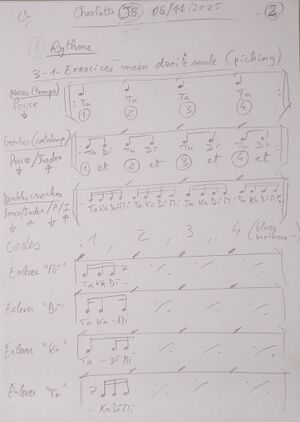 Charlotte J8 06/11/2025 2
1 Rythme
3-1-Exercices main droite seule (picking)
Noires (temps)
Pouce
Ta Ta Ta Ta
1 2 3 4
Croches (contretemps)
Pouce/Index
Ta Di Ta Di Ta Di Ta Di
1 et 2 et 3 et 4 et
Doubles croches
Pouce/Index/P/I
Ta Ka Di Mi Ta Ka Di Mi Ta Ka Di Mi Ta Ka Di Mi
: 1 2, 3, 4
Enlever "Mi"
Ta Ka Di -
Enlever "Di"
Ta Ka - Mi
Enlever "Ka"
Ta - Di Mi
Enlever "Ta"
- Ka Di Mi